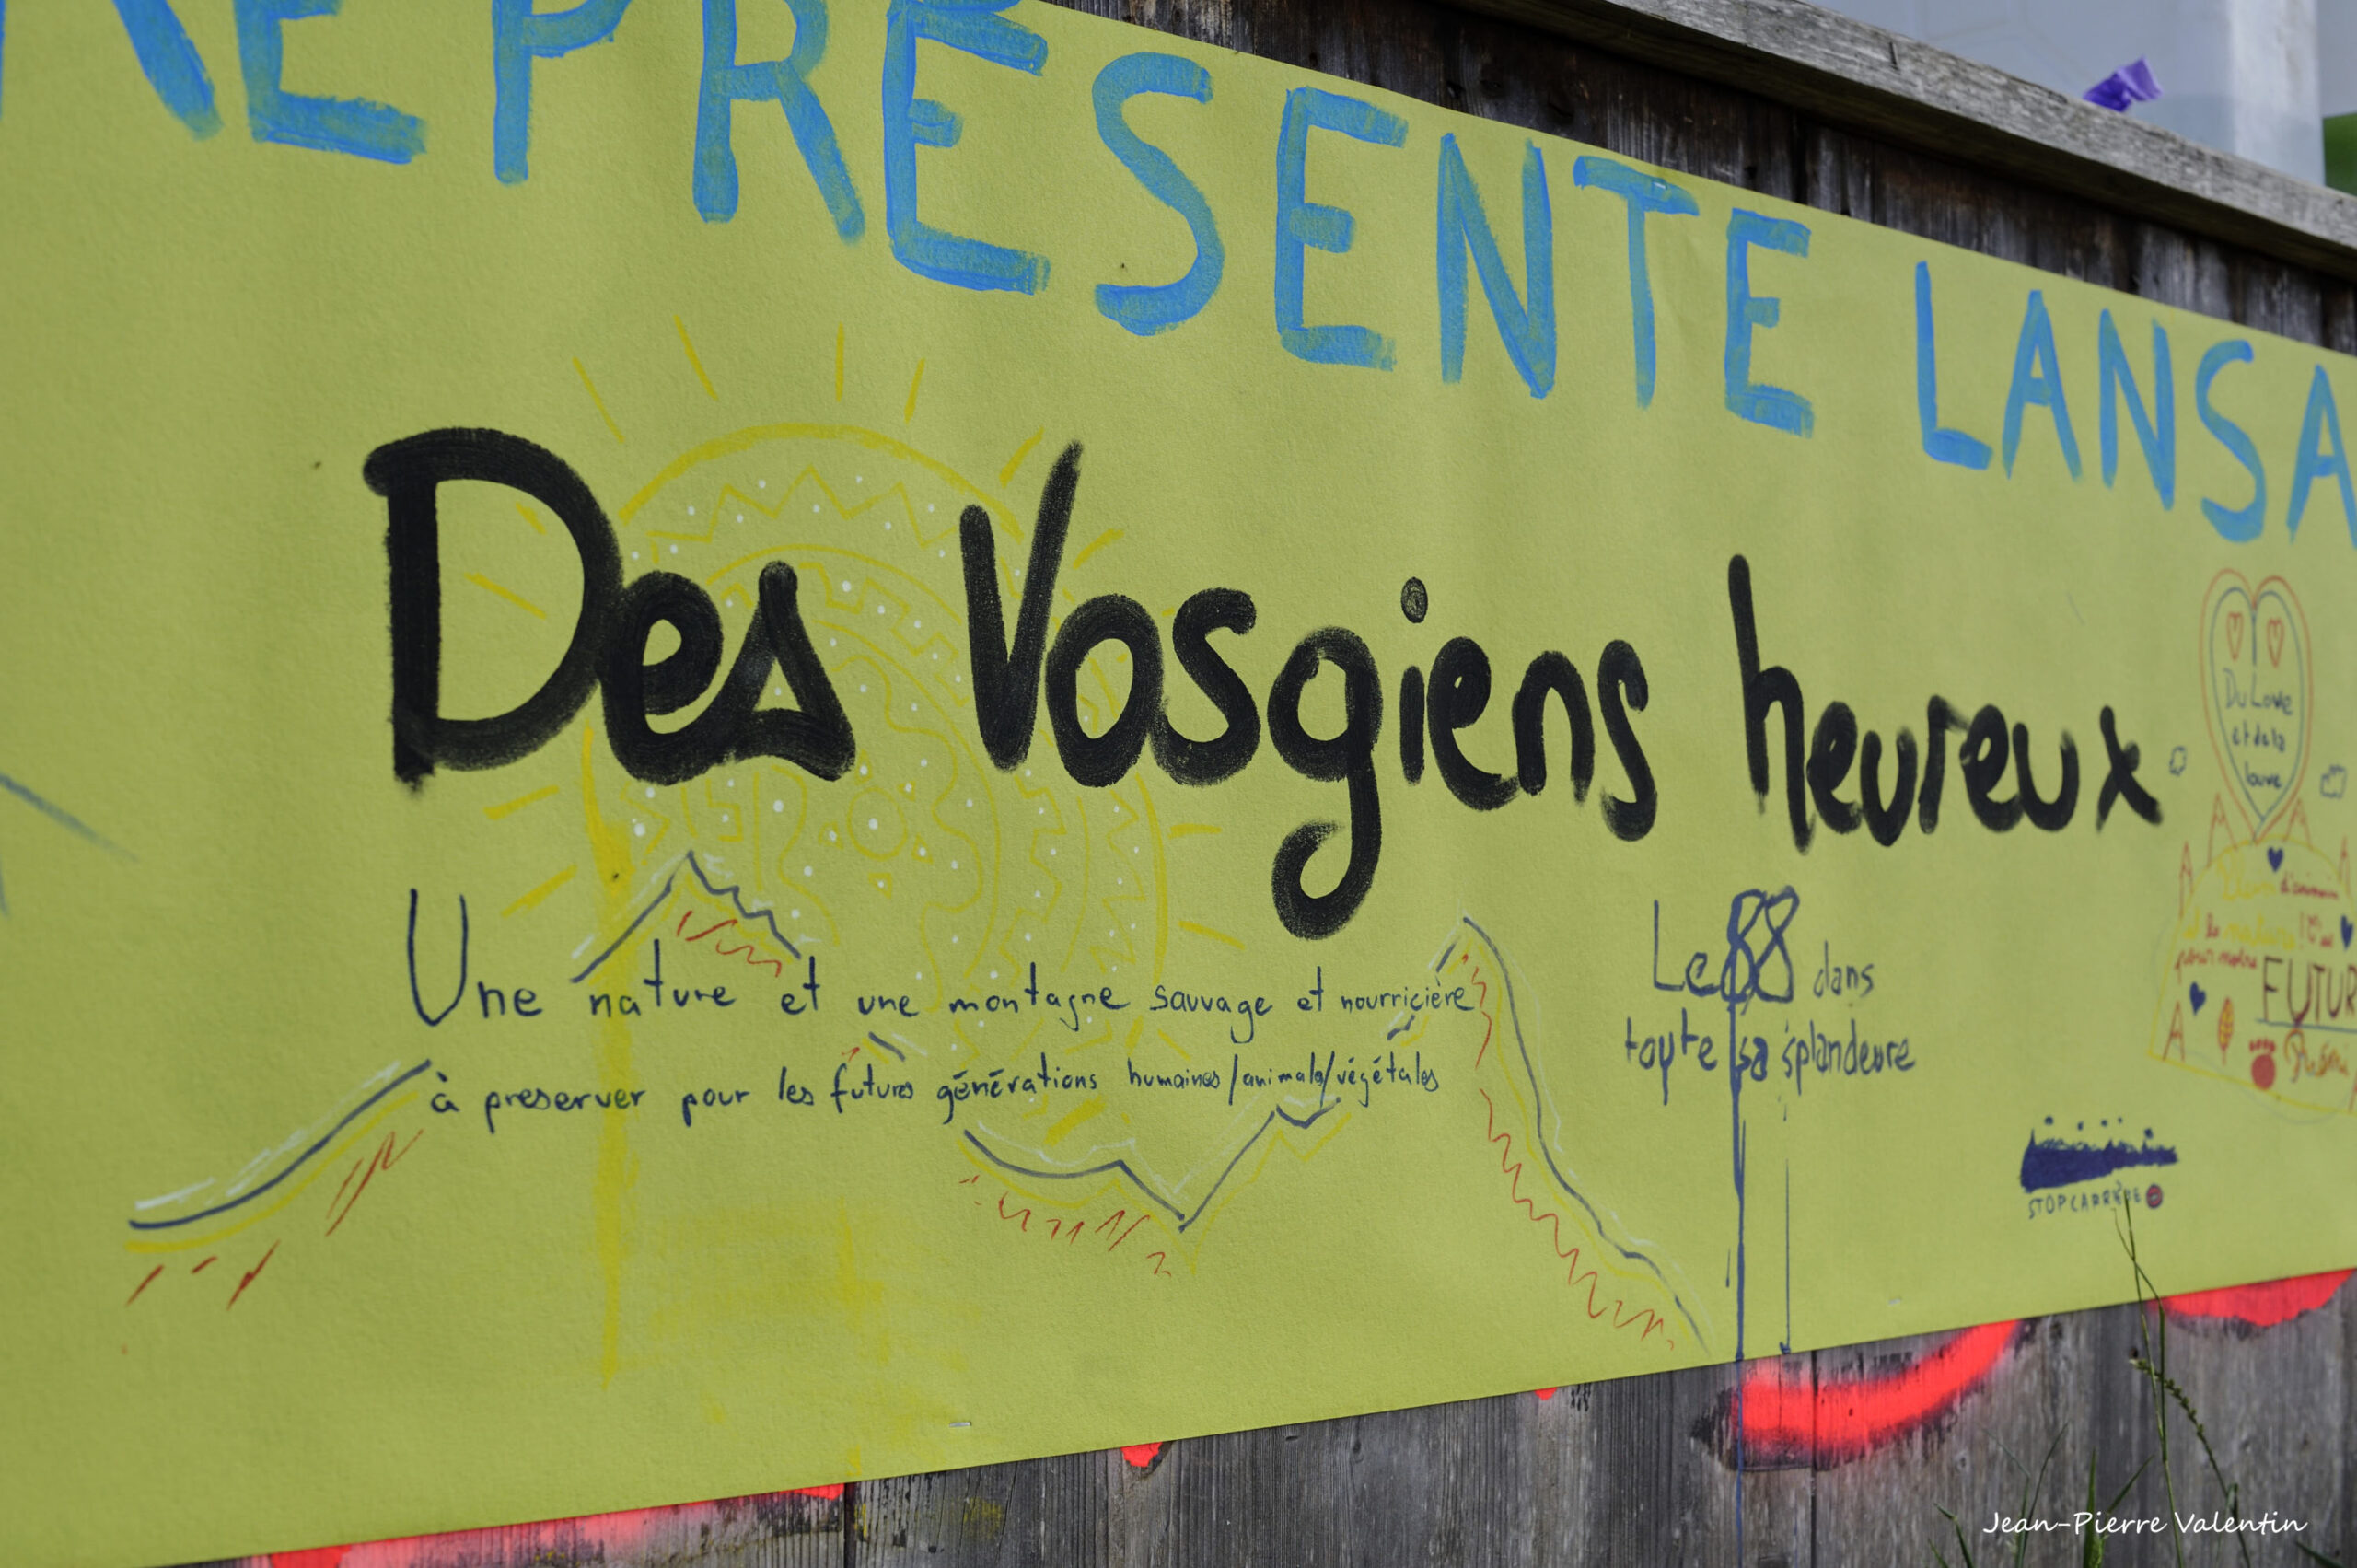 REPRESENTE LANSA
Des Vosgiens heureux
Une nature et une montagne sauvage et nourricière
à preserver pour les futures générations humaines/animals/végétales
Le 88 dans
toute sa splandeure
Du Love
et de la
louve
pour notre
FUTUR
STOP CARRIÈRE
Jean-Pierre Valentin